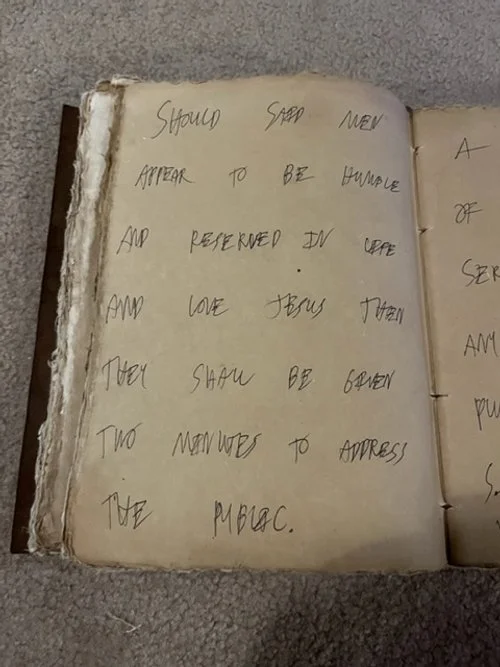 SHOULD SAID MEN
APPEAR TO BE HUMBLE
AND RESERVED IN LIFE
AND LOVE JESUS THEN
THEY SHALL BE GIVEN
TWO MINUTES TO ADDRESS
THE PUBLIC.
A
OF
SER
ANY
PU
S